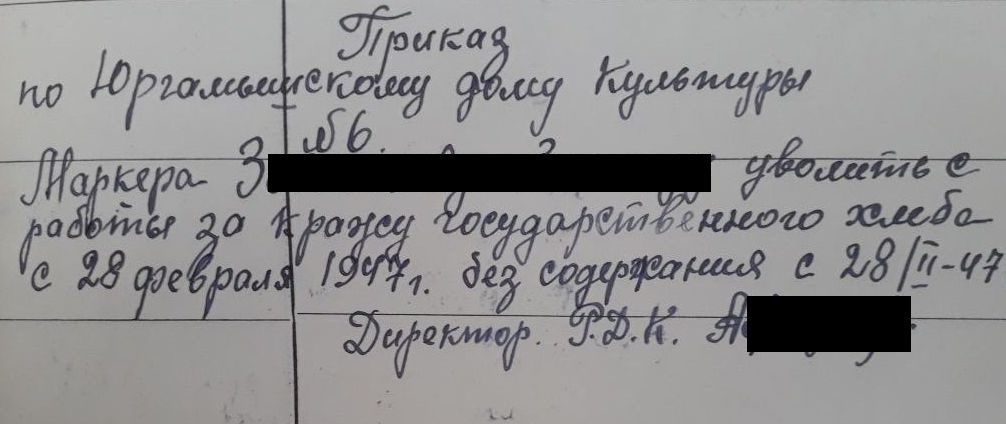 Приказ
по Юргамышскому дому Культуры
№6.
Маркера З уволить с
работы за Кражу государственного хлеба
с 28 февраля 1947г. без содержания с 28/II-47
Директор. Р.Д.К. А